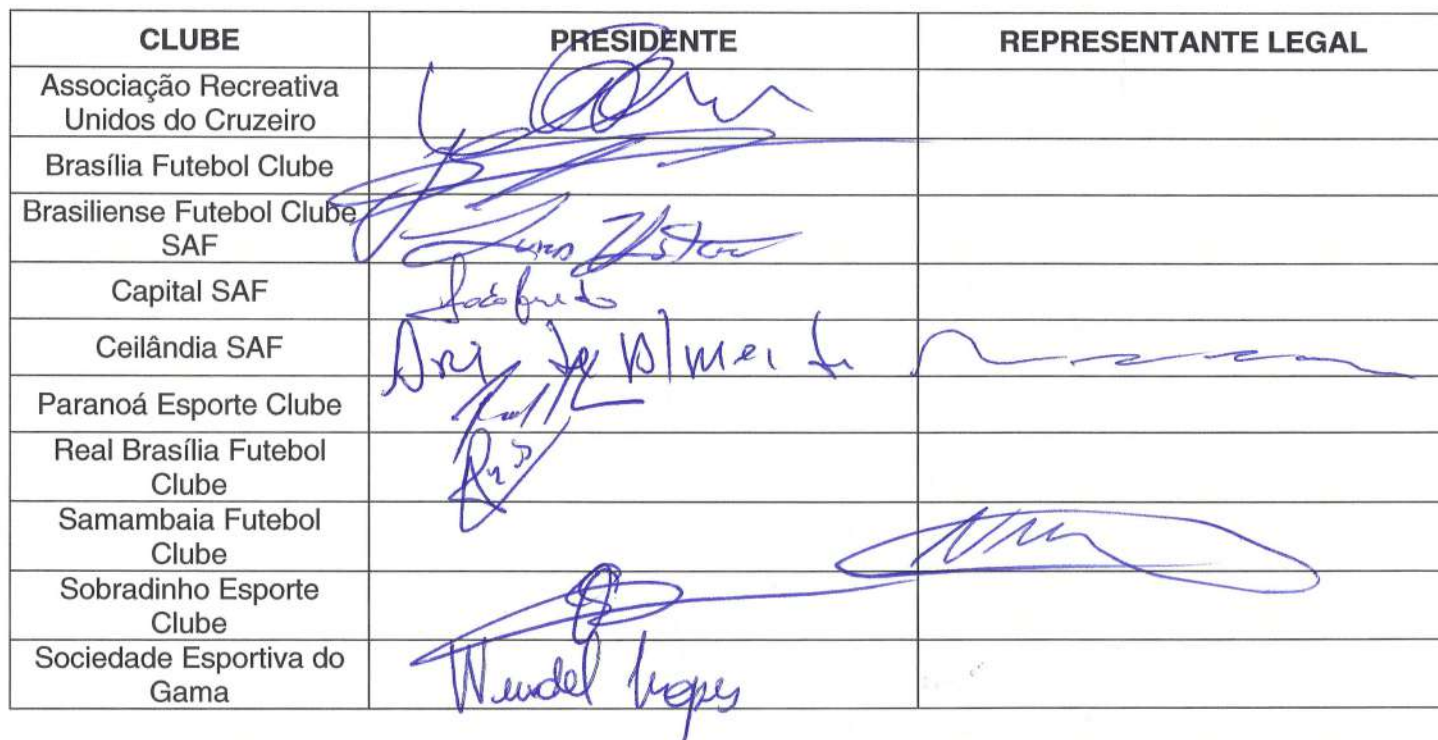 CLUBE PRESIDENTE REPRESENTANTE LEGAL
Associação Recreativa
Unidos do Cruzeiro
Brasília Futebol Clube
Brasiliense Futebol Clube
SAF
Capital SAF
Ceilândia SAF
Paranoá Esporte Clube
Real Brasília Futebol
Clube
Samambaia Futebol
Clube
Sobradinho Esporte
Clube
Sociedade Esportiva do
Gama
Wendel Lopes